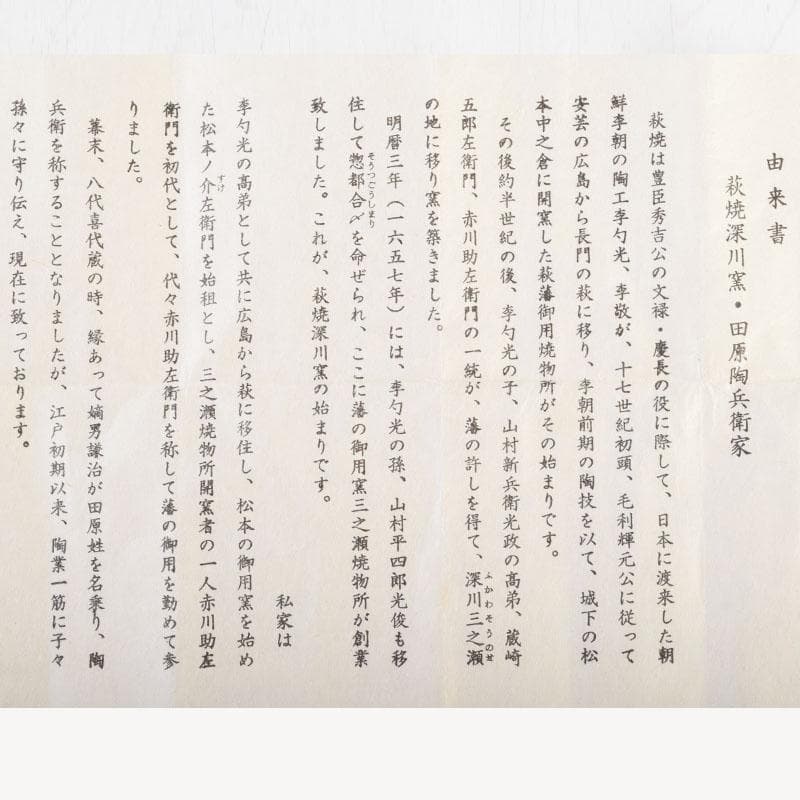 由来書
萩焼深川窯・田原陶兵衛家
萩焼は豊臣秀吉公の文禄・慶長の役に際して、日本に渡来した朝
鮮李朝の陶工李勺光、李敬が、十七世紀初頭、毛利輝元公に従って
安芸の広島から長門の萩に移り、李朝前期の陶技を以て、城下の松
本中之倉に開窯した萩藩御用焼物所がその始まりです。
その後約半世紀の後、李勺光の子、山村新兵衛光政の高弟、蔵崎
五郎左衛門、赤川助左衛門の一統が、藩の許しを得て、深川三之瀬
ふかわそうのせ
の地に移り窯を築きました。
明暦三年(一六五七年)には、李勺光の孫、山村平四郎光俊も移
住して惣都合〆を命ぜられ、ここに藩の御用窯三之瀬焼物所が創業
そうつごうしまり
致しました。これが、萩焼深川窯の始まりです。
私家は
李勺光の高弟として共に広島から萩に移住し、松本の御用窯を始め
た松本ノ介左衛門を始祖とし、三之瀬焼物所開窯者の一人赤川助左
すけ
衛門を初代として、代々赤川助左衛門を称して藩の御用を勤めて参
りました。
幕末、八代喜代蔵の時、縁あって嫡男謙治が田原姓を名乗り、陶
兵衛を称することとなりましたが、江戸初期以来、陶業一筋に子々
孫々に守り伝え、現在に致っております。